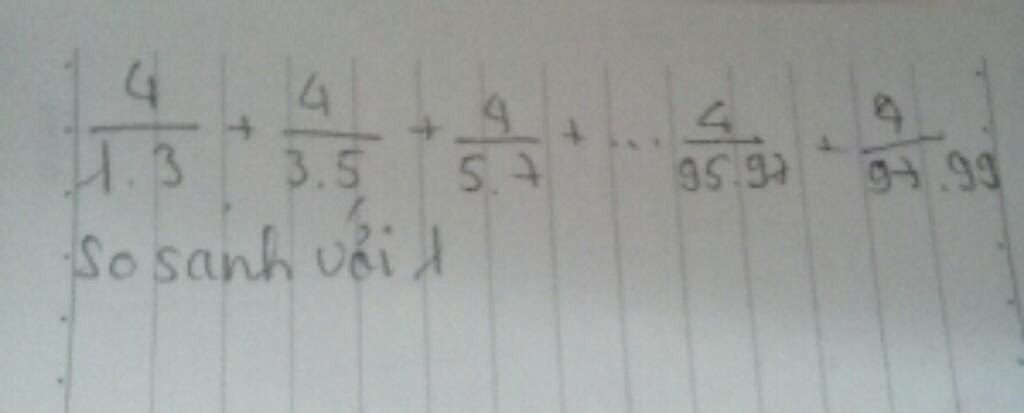 4/1.3 + 4/3.5 + 4/5.7 + ... 4/95.97 + 4/97.99
So sánh với 1